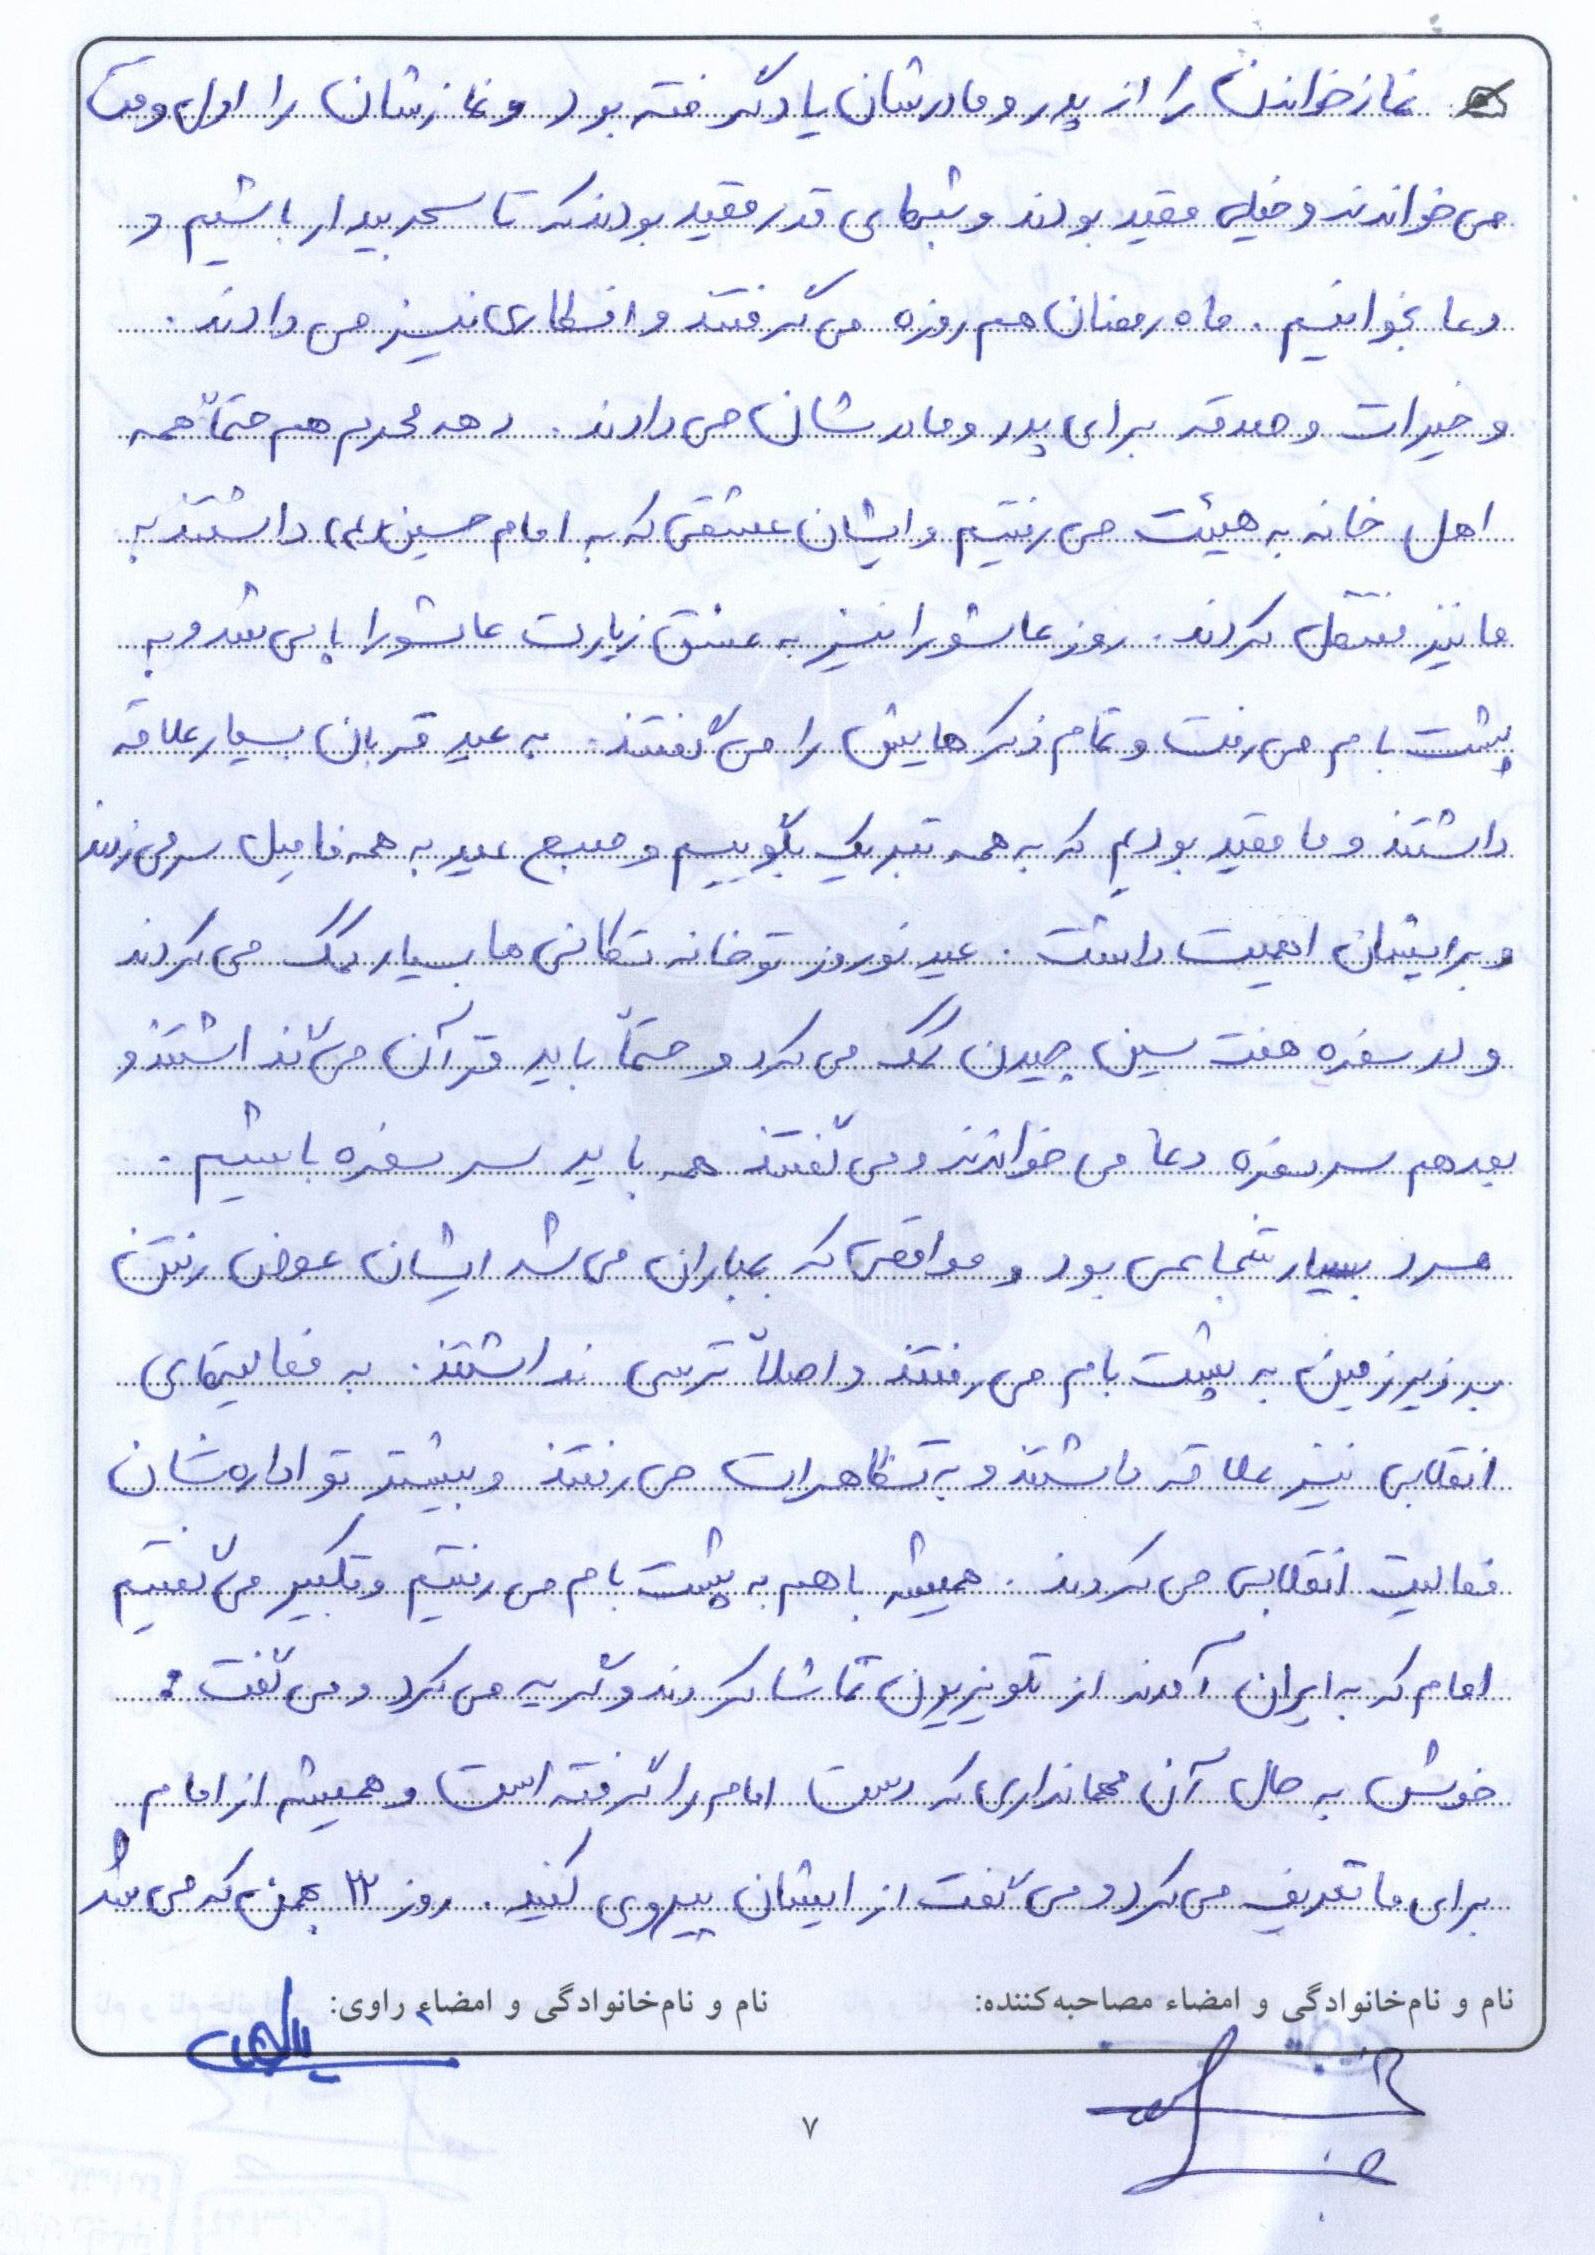 نماز خواندن را از پدر و مادرشان یاد گرفته بود و نمازشان را اول وقت
می خواندند و خیلی مقید بودند و شبهای قدر مقید بودند که تا سحر بیدار باشیم و
دعا بخوانیم . ماه رمضان هم روزه می گرفتند و افطاری نیز می دادند .
و خیرات و صدقه برای پدر و مادرشان می دادند . دهه محرم هم حتماً همه
اهل خانه به هیئت می رفتیم و ایشان عشقی که به امام حسین (ع) داشتند به
ما نیز منتقل کردند . روز عاشورا نیز به عشق زیارت عاشورا پا می شد و به
پشت بام می رفت و تمام ذکرهایش را می گفتند . به عید قربان بسیار علاقه
داشتند و ما مقید بودیم که به همه تبریک بگوییم و صبح عید به همه فامیل سر می زدند
و برایشان اهمیت داشت . عید نوروز تو خانه تکانی ها بسیار کمک می کردند
و در سفره هفت سین چیدن کمک می کرد و حتماً باید قرآن می گذاشتند و
بعد هم سر سفره دعا می خواندند و می گفتند همه باید سر سفره باشیم .
مرد بسیار شجاعی بود و مواقعی که بمباران می شد ایشان عوض رفتن
به زیرزمین به پشت بام می رفتند و اصلاً ترسی نداشتند . به فعالیتهای
انقلابی نیز علاقه داشتند و به تظاهرات می رفتند و بیشتر تو اداره شان
فعالیت انقلابی می کردند . همیشه با هم به پشت بام می رفتیم و تکبیر می گفتیم
امام که به ایران آمدند از تلویزیون تماشا کردند و گریه می کرد و می گفت :
خوش به حال آن مهمانداری که دست امام را گرفته است و همیشه از امام
برای ما تعریف می کرد و می گفت از ایشان پیروی کنید . روز ۲۲ بهمن که می شد
نام و نام‌خانوادگی و امضاء مصاحبه‌کننده: نام و نام‌خانوادگی و امضاء راوی:
۷